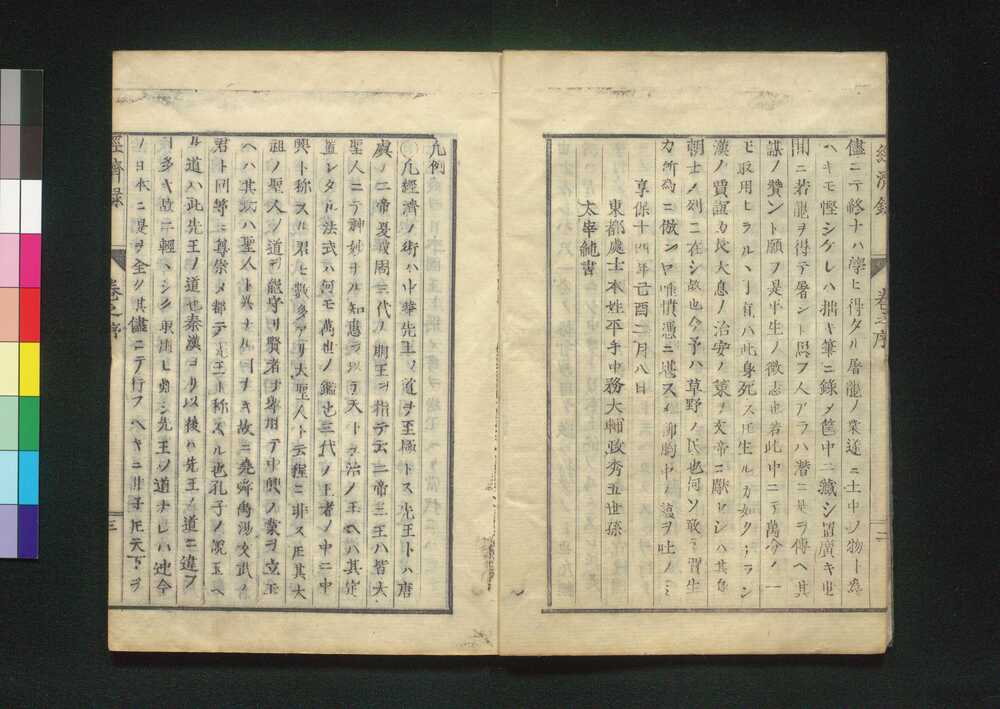 經濟録
卷之序
二
儘ニテ終ナハ學ヒ得タル屠龍ノ業遂ニ土中ノ物ト爲
ヘキモ慳シケレハ拙キ筆ニ錄メ笥中ニ藏シ置廣キ世
間ニ若龍ヲ得テ屠ント思フ人アラハ潛ニ是ヲ傳ヘ其
謀ノ贊ント願フ是平生ノ微志也若此中ニテ萬分ノ一
モ取用ヒラルヽ丁有ハ此身死ストモ生ルカ如クナラン
漢ノ賈誼カ長大息ノ治安ノ策ヲ文帝ニ獻セシハ其身
朝士ノ列ニ在シ故也今予ハ草野ノ民也何ソ敢テ賈生
カ所爲ニ傚ンヤ唯憤懣ニ堪スメ聊胸中ノ蘊ヲ吐ノミ
享保十四年己酉二月八日
東都處士本姓平手中務大輔政秀五世孫
太宰純書
凡例
凡經濟ノ術ハ中華先王ノ道ヲ至極トス先王トハ唐
虞ノ二帝夏殷周三代ノ明王ヲ指テ云二帝三王ハ皆大
聖人ニテ神妙ナル知惠ヲ以テ天下ヲ治ノ玉ヘハ其定
置レタル法式ハ何モ萬世ノ鑑也三代ノ王者ノ中ニ中
興ト称スル君モ數多アリ大聖人ト云程ニ非スモ其大
祖ノ聖人ノ道ヲ能守リ賢者ヲ擧用テ中興ノ業ヲ立玉
ヘハ其功ハ聖人ト異ナル丁ナキ故ニ堯舜禹湯文武ノ
君ト同等ニ尊崇メ都テ先王ト称スル也孔子ノ說玉ヘ
ル道ハ此先王ノ道也秦漢ヨリ以後ハ先王ノ道ニ違フ
丁多キ故ニ輕々シク取用ヒ難シ先王ノ道ナレハ迚今
ノ日本ニ是ヲ全ク其儘ニテ行フヘキニ非子モ天下ヲ
經濟録
卷之序
三